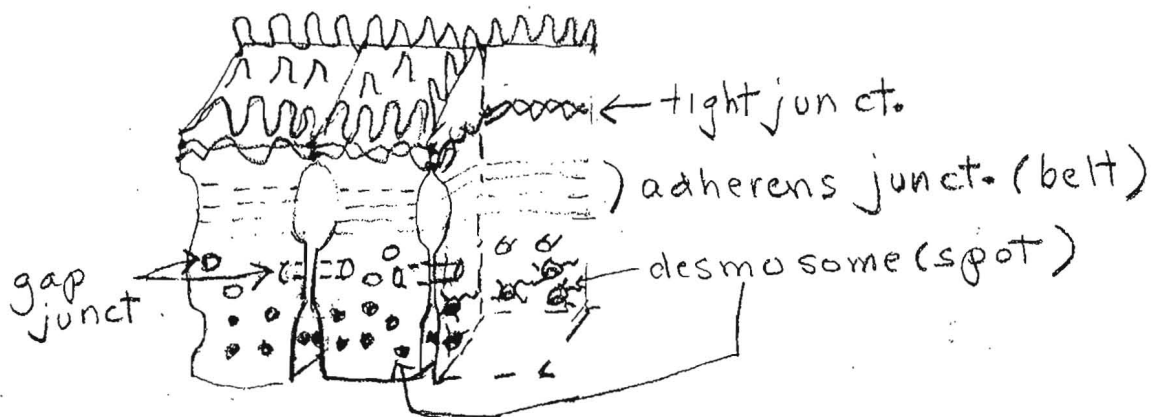 tight junct.
adherens junct. (belt)
desmosome (spot)
gap
junct.